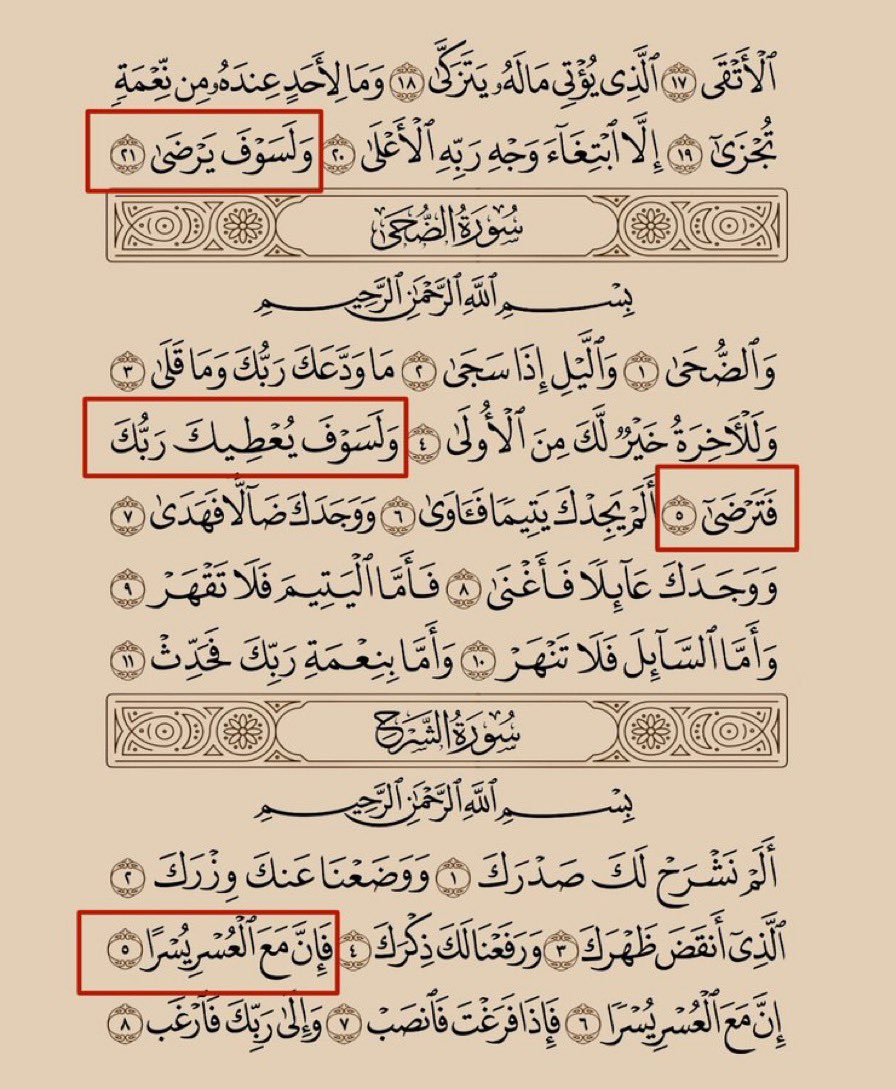 ٱلْأَتْقَى ١٧ ٱلَّذِى يُؤْتِى مَالَهُۥ يَتَزَكَّىٰ ١٨ وَمَا لِأَحَدٍ عِندَهُۥ مِن نِّعْمَةٍ
تُجْزَىٰٓ ١٩ إِلَّا ٱبْتِغَآءَ وَجْهِ رَبِّهِ ٱلْأَعْلَىٰ ٢٠ وَلَسَوْفَ يَرْضَىٰ ٢١
سُورَةُ الضُّحَىٰ
بِسْمِ ٱللَّهِ ٱلرَّحْمَٰنِ ٱلرَّحِيمِ
وَٱلضُّحَىٰ ١ وَٱلَّيْلِ إِذَا سَجَىٰ ٢ مَا وَدَّعَكَ رَبُّكَ وَمَا قَلَىٰ ٣
وَلَلْـَٔاخِرَةُ خَيْرٌ لَّكَ مِنَ ٱلْأُولَىٰ ٤ وَلَسَوْفَ يُعْطِيكَ رَبُّكَ
فَتَرْضَىٰٓ ٥ أَلَمْ يَجِدْكَ يَتِيمًا فَـَٔاوَىٰ ٦ وَوَجَدَكَ ضَآلًّا فَهَدَىٰ ٧
وَوَجَدَكَ عَآئِلًا فَأَغْنَىٰ ٨ فَأَمَّا ٱلْيَتِيمَ فَلَا تَقْهَرْ ٩
وَأَمَّا ٱلسَّآئِلَ فَلَا تَنْهَرْ ١٠ وَأَمَّا بِنِعْمَةِ رَبِّكَ فَحَدِّثْ ١١
سُورَةُ الشَّرْحِ
بِسْمِ ٱللَّهِ ٱلرَّحْمَٰنِ ٱلرَّحِيمِ
أَلَمْ نَشْرَحْ لَكَ صَدْرَكَ ١ وَوَضَعْنَا عَنكَ وِزْرَكَ ٢
ٱلَّذِىٓ أَنقَضَ ظَهْرَكَ ٣ وَرَفَعْنَا لَكَ ذِكْرَكَ ٤ فَإِنَّ مَعَ ٱلْعُسْرِ يُسْرًا ٥
إِنَّ مَعَ ٱلْعُسْرِ يُسْرًا ٦ فَإِذَا فَرَغْتَ فَٱنصَبْ ٧ وَإِلَىٰ رَبِّكَ فَٱرْغَب ٨